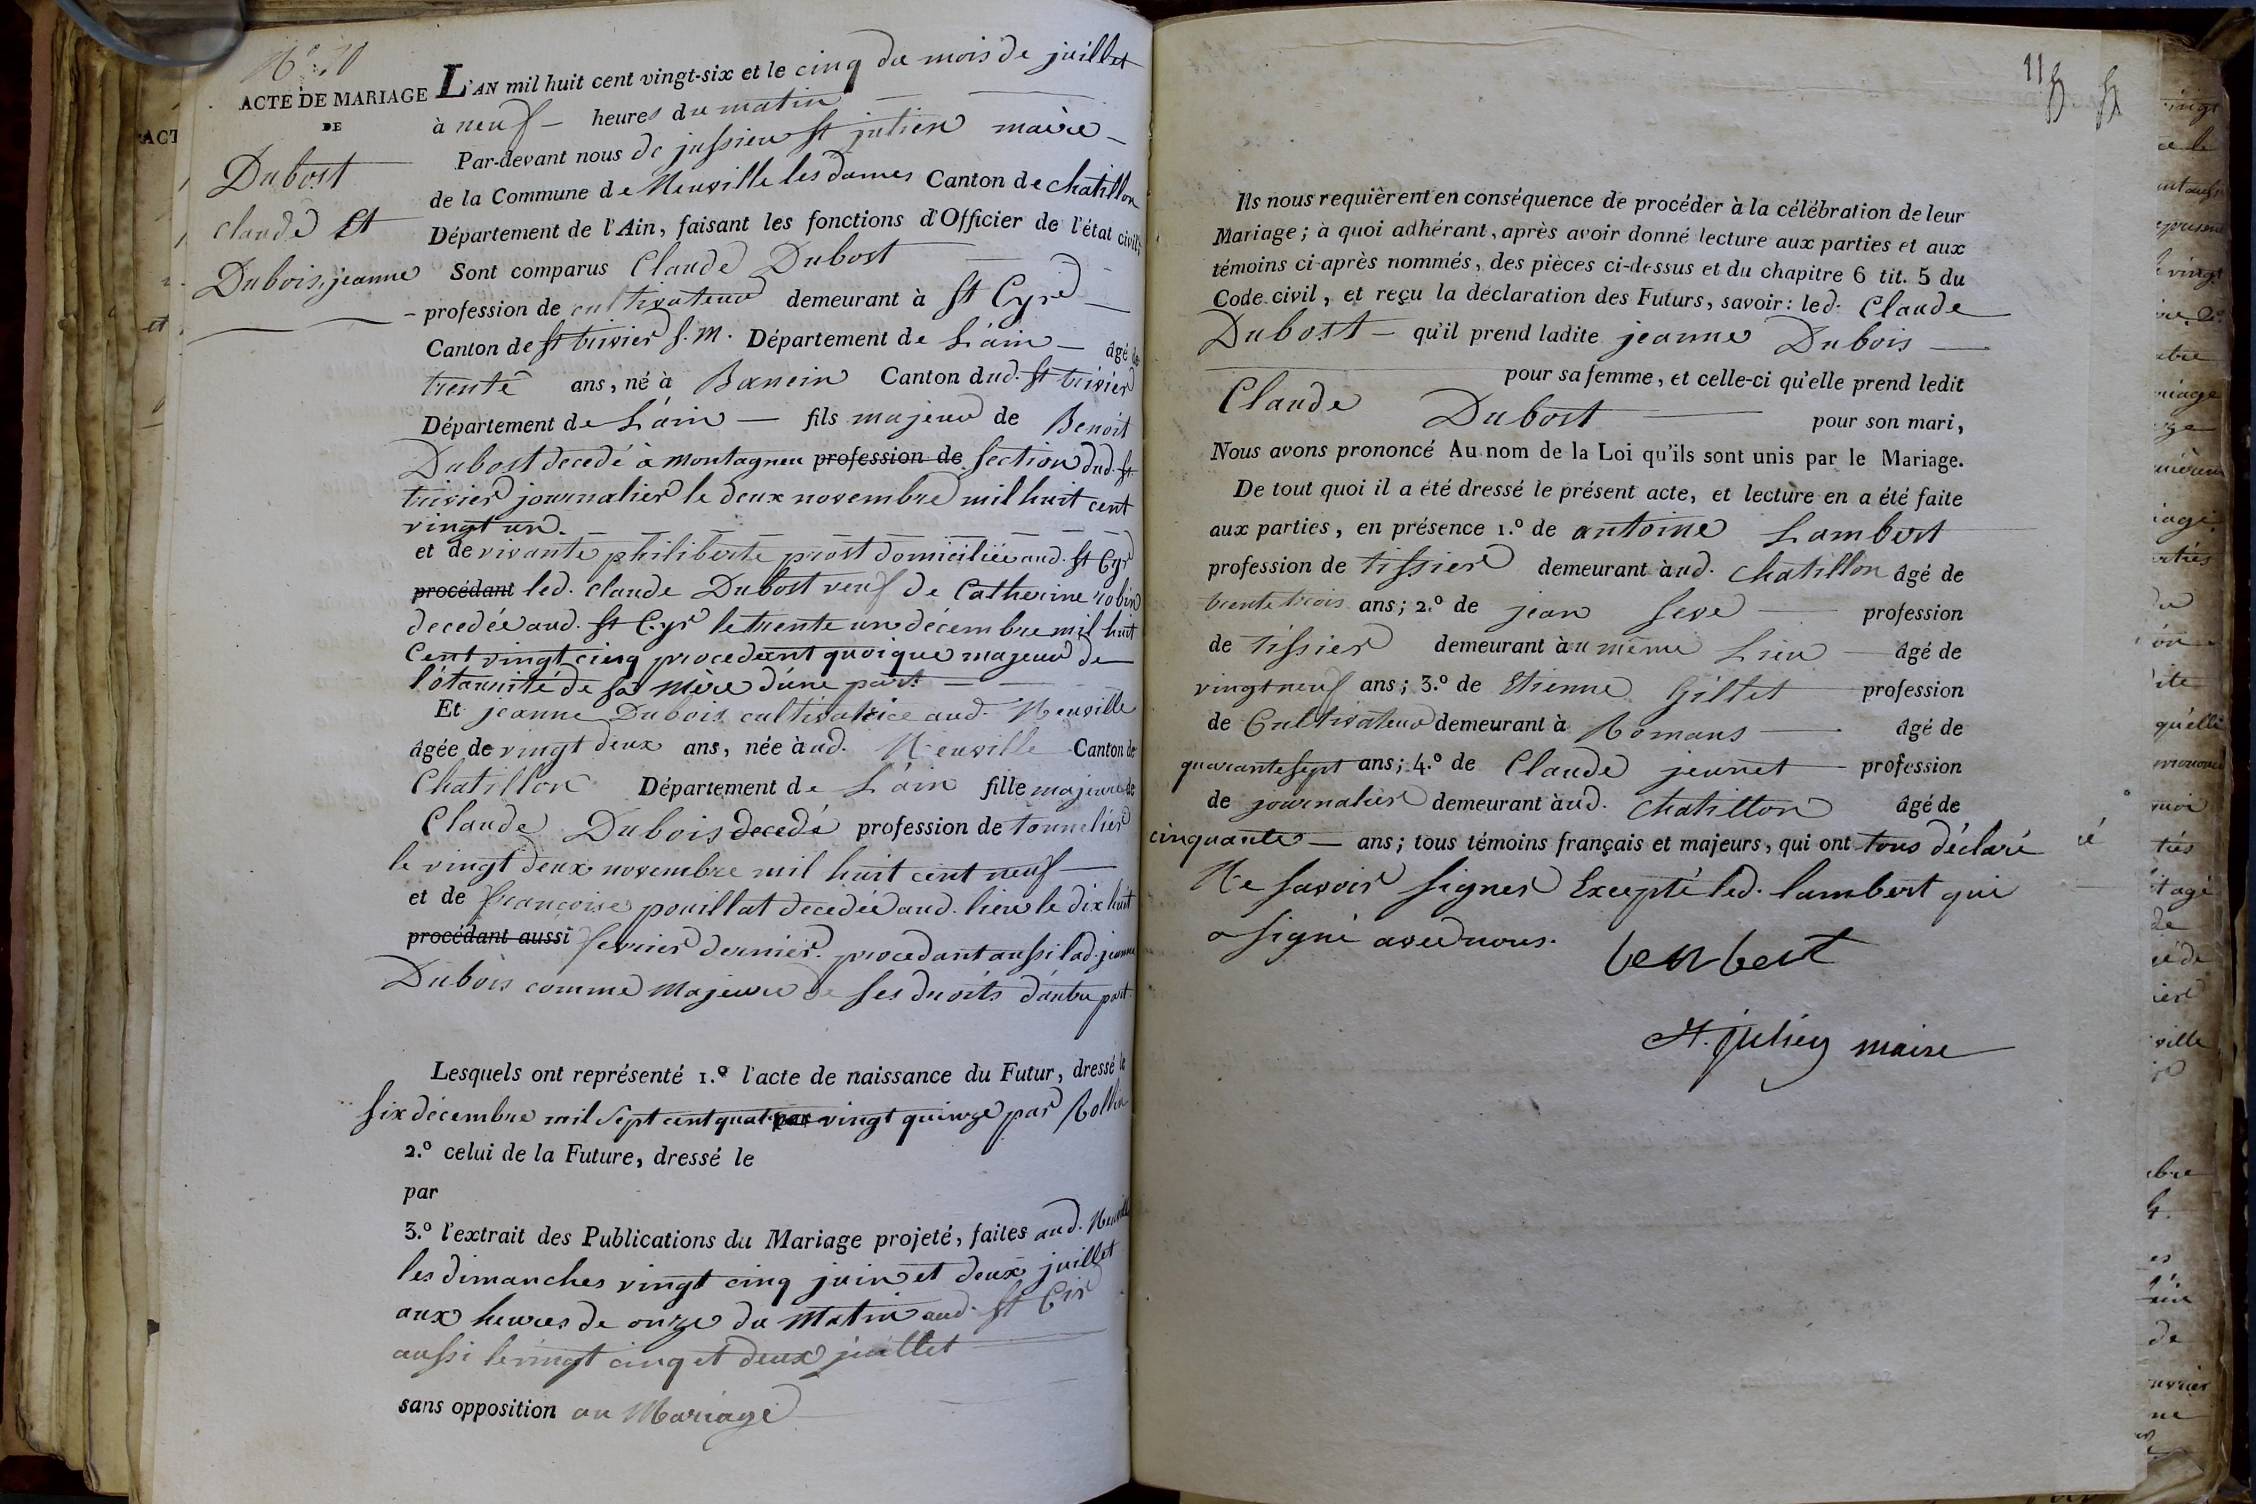 N.º 10
ACTE DE MARIAGE
DE
Dubost
claude Et
Dubois, jeanne
L'AN mil huit cent vingt-six et le cinq du mois de juillet
à neuf — heures du matin
Par-devant nous de jussieu st julien maire
de la Commune de Neuville les dames Canton de chatillon
Département de l'Ain, faisant les fonctions d'Officier de l'état civil;
Sont comparus Claude Dubost
profession de cultivateur demeurant à St Cyr
Canton de St trivier S. M. Département de L'ain — âgé de
trente ans, né à Banein Canton dud. St trivier
Département de L'ain — fils majeur de Benoit
Dubost decedé à Montagneu profession de section dud. St
trivier journalier le deux novembre mil huit cent
vingt un.
et de vivante philiberte prost domiciliée aud. St Cyr
procédant led. claude Dubost veuf de Catherine robin
decedée aud. St Cyr le trente un décembre mil huit
Cent vingt cinq procedant quoique majeur de
l'otaurité de sa Mère d'une part.
Et jeanne Dubois cultivatrice aud. Neuville
âgée de vingt deux ans, née à ud. Neuville Canton de
Chatillon Département de L'ain fille majeure de
Claude Dubois decedé profession de tonnelier
le vingt deux novembre mil huit cent neuf
et de françoise pouillat decedée aud. lieu le dix huit
procédant aussi fevrier dernier. procedant aussi lad. jeanne
Dubois comme Majeure de ses droits d'autre part.
Lesquels ont représenté 1.º l'acte de naissance du Futur, dressé le
six décembre mil sept cent quatre par vingt quinze par Rollin
2.º celui de la Future, dressé le
par
3.º l'extrait des Publications du Mariage projeté, faites aud. Neuville
les dimanches vingt cinq juin et deux juillet
aux heures de onze du Matin aud. St Cir
aussi le vingt cinq et deux juillet
sans opposition au Mariage
11
Ils nous requièrent en conséquence de procéder à la célébration de leur
Mariage; à quoi adhérant, après avoir donné lecture aux parties et aux
témoins ci-après nommés, des pièces ci-dessus et du chapitre 6 tit. 5 du
Code civil, et reçu la déclaration des Futurs, savoir: led. Claude
Dubost — qu'il prend ladite jeanne Dubois
pour sa femme, et celle-ci qu'elle prend ledit
Claude Dubost pour son mari,
Nous avons prononcé Au nom de la Loi qu'ils sont unis par le Mariage.
De tout quoi il a été dressé le présent acte, et lecture en a été faite
aux parties, en présence 1.º de antoine Lambert
profession de tissier demeurant à ud. Chatillon âgé de
trente trois ans; 2.º de jean Seve profession
de tissier demeurant à u même Lieu âgé de
vingt neuf ans; 3.º de Etienne Gillet profession
de Cultivateur demeurant à Romans âgé de
quarante sept ans; 4.º de Claude jeunet profession
de journalier demeurant à ud. Chatillon âgé de
cinquante — ans; tous témoins français et majeurs, qui ont tous déclaré
Ne savoir signer Excepté led. lambert qui
a signé avec nous.
lenbert
St. julien maire